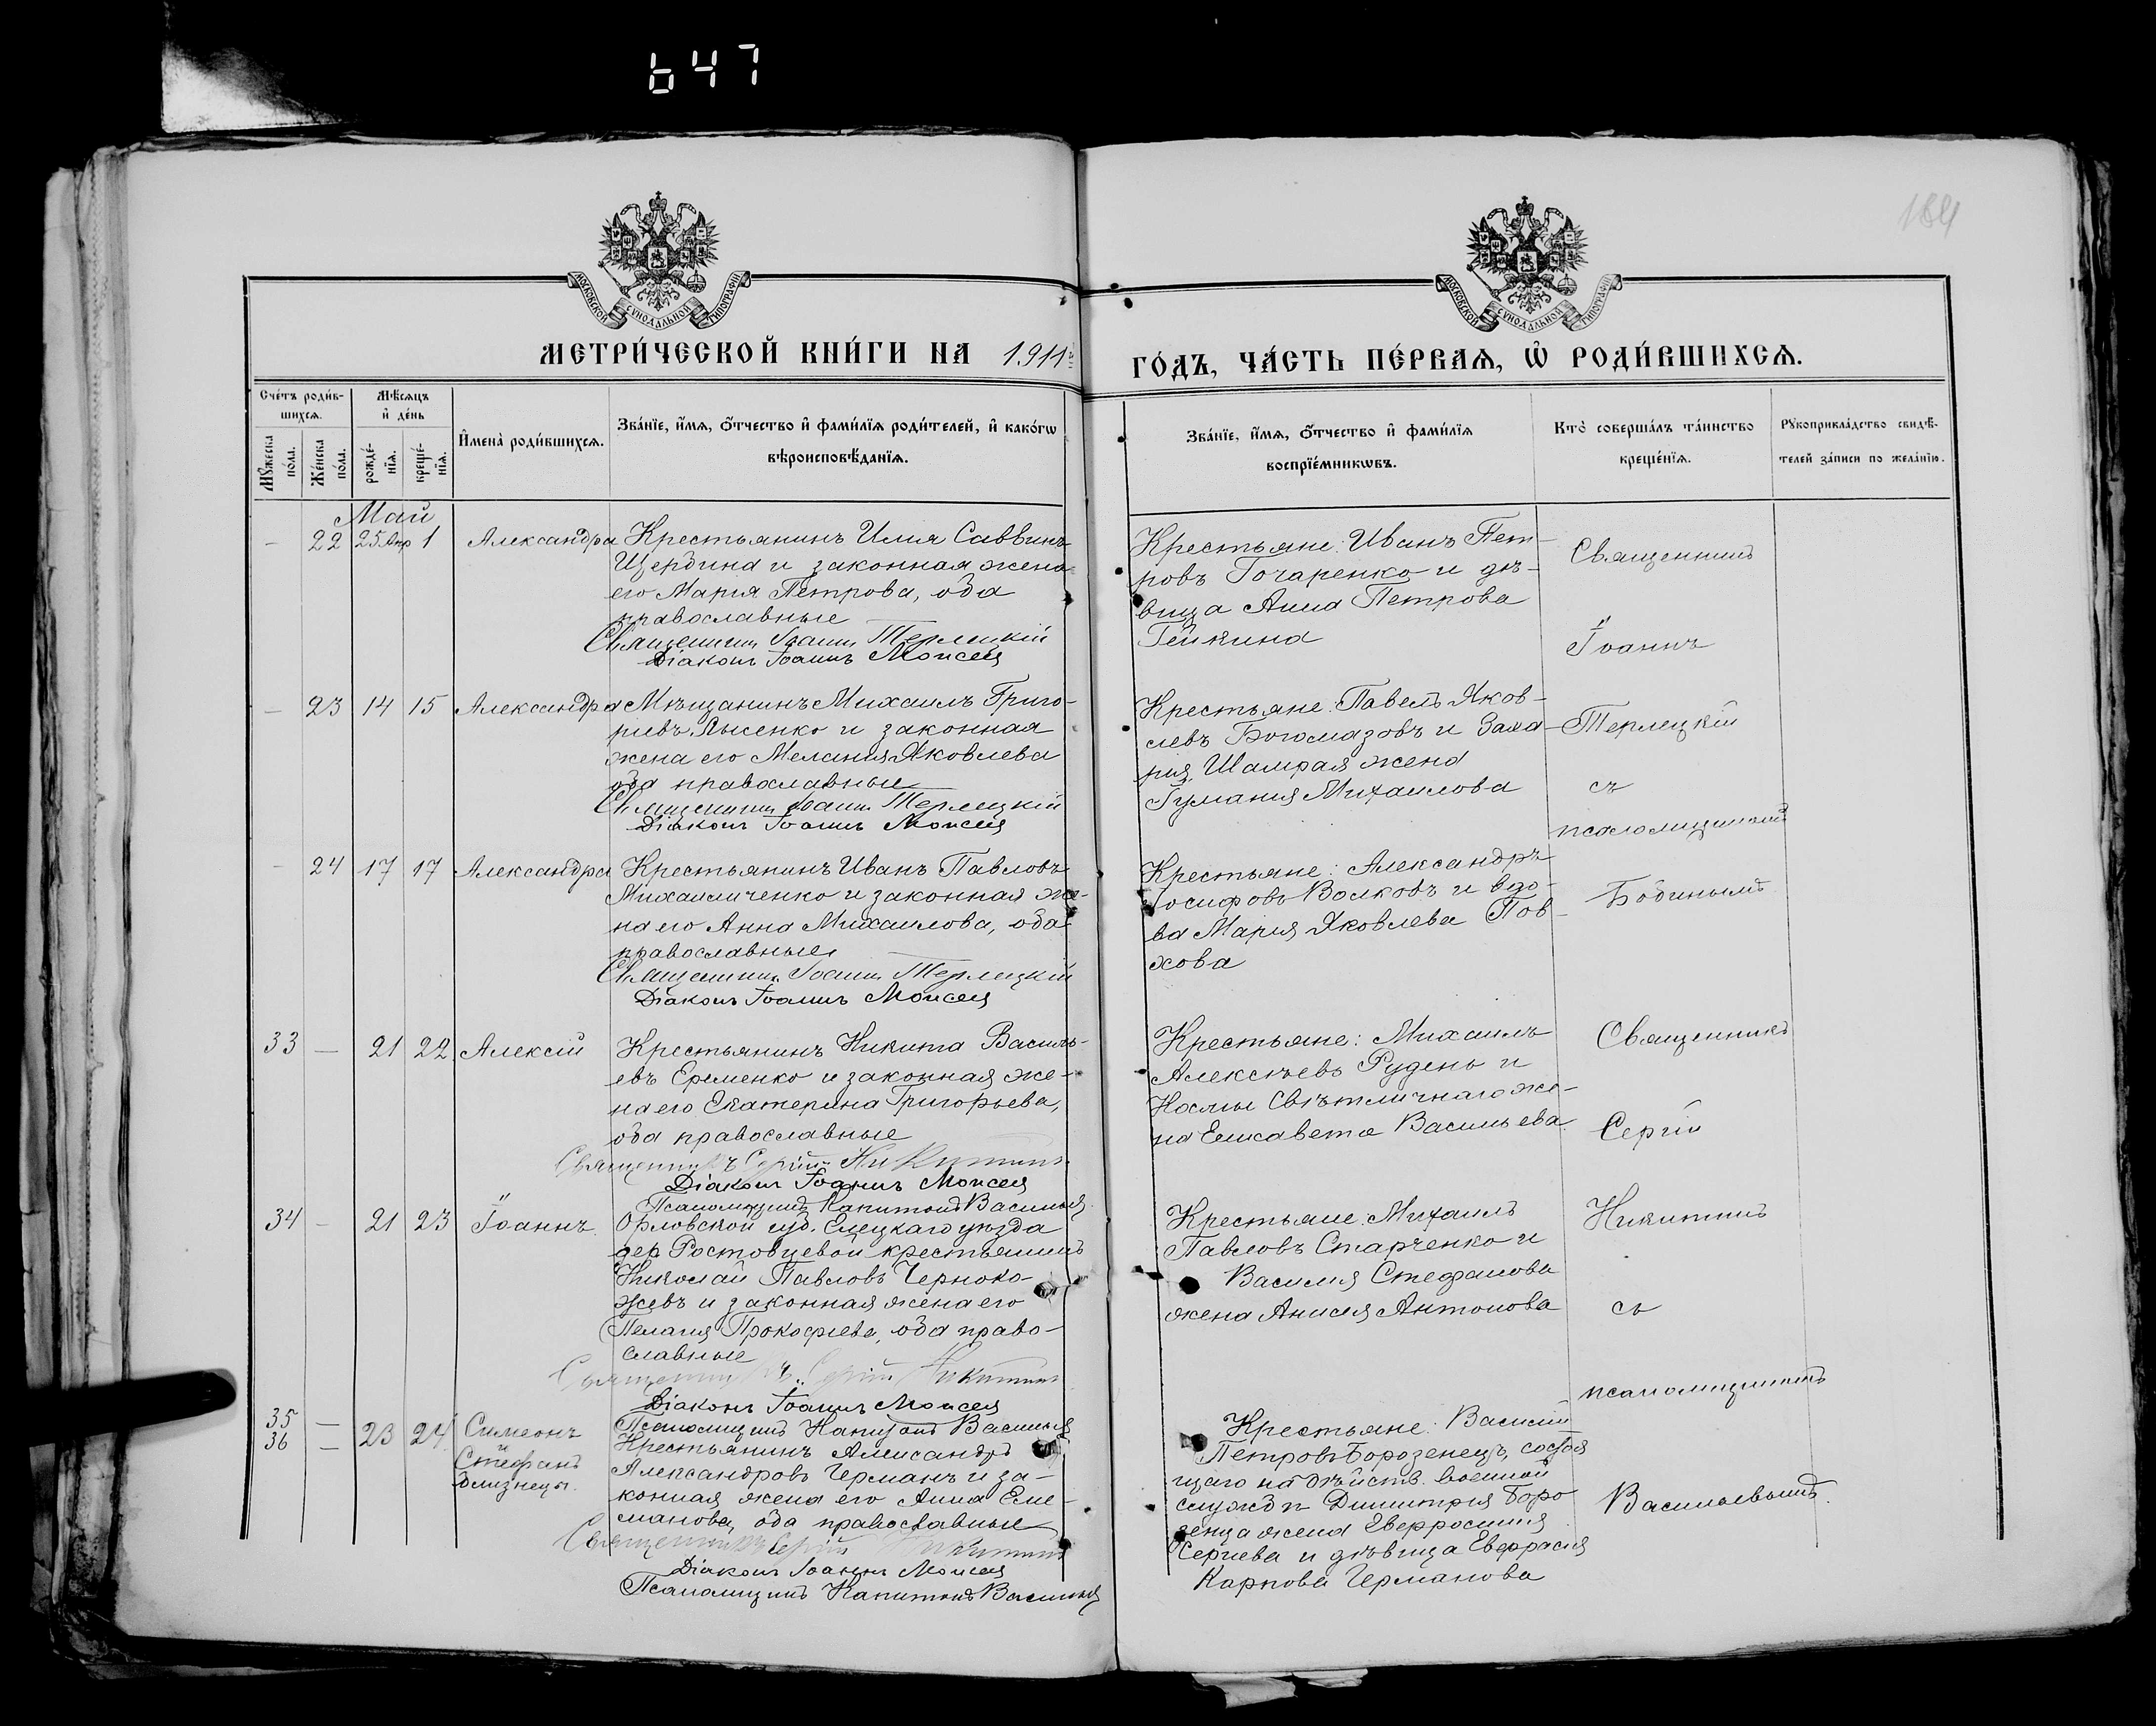 647
184
МОСКОВСКОЙ СУНОДАЛЬНОЙ ТИПОГРАФІИ
МОСКОВСКОЙ СУНОДАЛЬНОЙ ТИПОГРАФІИ
МЕТРИ́ЧЕСКОЙ КНИ́ГИ НА 1911 г.
ГО́ДЪ, ЧА́СТЬ ПЕ́РВАѦ, Ѡ҆ РОДИ́ВШИХСѦ.
Сче́тъ роди́в-
шихсѧ.
Мѣ́сѧцъ
и҆ де́нь
Мꙋ́жеска
по́ла.
Же́нска
по́ла.
рожде́-
нїѧ.
креще́-
нїѧ.
И҆мена̀ роди́вшихсѧ.
Зва́нїе, и҆́мѧ, ѻ҆́тчество и҆ фами́лїѧ роди́телей, и҆ како́гѡ
вѣроисповѣ́данїѧ.
Зва́нїе, и҆́мѧ, ѻ҆́тчество и҆ фами́лїѧ
воспрїе́мникѡвъ.
Кто̀ соверша́лъ та́инство
креще́нїѧ.
Рꙋкоприкла́дство свидѣ́-
телей за́писи по жела́нїю.
Май
— 22 25 Апр 1 Александра
Крестьянинъ Илия Саввинъ
Щербина и законная жена
его Мария Петрова, оба
православные
Священникъ Іоаннъ Терлецкій
Діаконъ Іоаннъ Моисея
Крестьяне: Иванъ Пет-
ровъ Гочаренко и дѣ-
вица Анна Петрова
Гейкина
— 23 14 15 Александра
Мѣщанинъ Михаилъ Григо-
риевъ Лысенко и законная
жена его Мелания Яковлева
оба православные
Священникъ Іоаннъ Терлецкій
Діаконъ Іоаннъ Моисея
Крестьяне: Павелъ Яков-
левъ Богомазовъ и Заха-
рия Шамрая жена
Гумания Михаилова
Священникъ
Іоаннъ
Терлецкій
съ
псаломщикомъ
Бобинымъ
— 24 17 17 Александра
Крестьянинъ Иванъ Павловъ
Михайличенко и законная же-
на его Анна Михаилова, оба
православные
Священникъ Іоаннъ Терлецкій
Діаконъ Іоаннъ Моисея
Крестьяне: Александръ
Іосифовъ Волковъ и вдо-
ва Мария Яковлева Пов-
хова
33 — 21 22 Алексій
Крестьянинъ Никита Василь-
евъ Еременко и законная же-
на его Екатерина Григорьева,
оба православные
Священникъ Сергій Никитинъ
Діаконъ Іоаннъ Моисея
Псаломщикъ Капитонъ Васильев
Крестьяне: Михаилъ
Алексѣевъ Рудень и
Космы Свѣтличнаго же-
на Елисавета Васильева
34 — 21 23 Іоаннъ
Орловской губ. Елецкаго уѣзда
дер Ростовцевой крестьянинъ
Николай Павловъ Черноко-
жевъ и законная жена его
Пелагия Прокофьева, оба право-
славные
Священникъ Сергій Никитинъ
Діаконъ Іоаннъ Моисея
Псаломщикъ Капитонъ Васильев
Крестьяне: Михаилъ
Павловъ Старченко и
Василия Стефанова
жена Анисия Антонова
Священникъ
Сергій
Никитинъ
съ
псаломщикомъ
Васильевымъ
35 —
36 — 23 24 Симеонъ
Стефанъ
близнецы.
Крестьянинъ Александръ
Александровъ Германъ и за-
конная жена его Анна Еме-
лианова, оба православные
Священникъ Сергій Никитинъ
Діаконъ Іоаннъ Моисея
Псаломщикъ Капитонъ Васильев
Крестьяне: Василий
Петровъ Борозенецъ, состоя
щаго на дѣйств. военной
службѣ Димитрия Боро
зенца жена Евфросиния
Сергиева и дѣвица Евфрасия
Карпова Германова